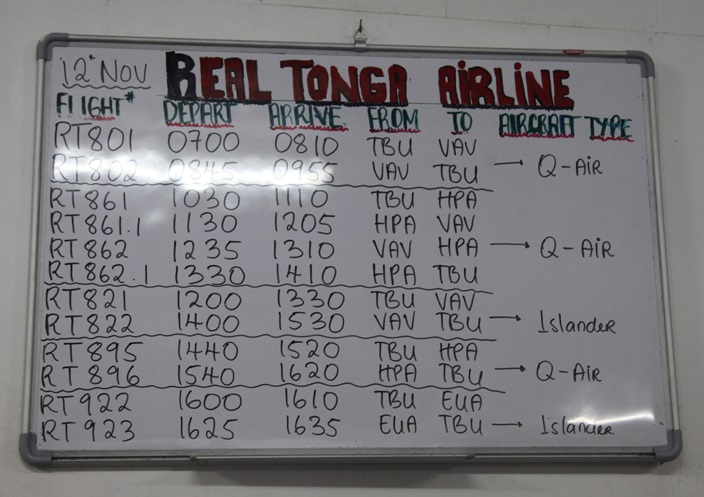 12 NOV REAL TONGA AIRLINE
FLIGHT# DEPART ARRIVE FROM TO AIRCRAFT TYPE
RT801 0700 0810 TBU VAV
RT802 0845 0955 VAV TBU → Q-AIR
RT861 1030 1110 TBU HPA
RT861.1 1130 1205 HPA VAV
RT862 1235 1310 VAV HPA → Q-AIR
RT862.1 1330 1410 HPA TBU
RT821 1200 1330 TBU VAV
RT822 1400 1530 VAV TBU → Islander
RT895 1440 1520 TBU HPA
RT896 1540 1620 HPA TBU → Q-AIR
RT922 1600 1610 TBU EUA
RT923 1625 1635 EUA TBU → Islander